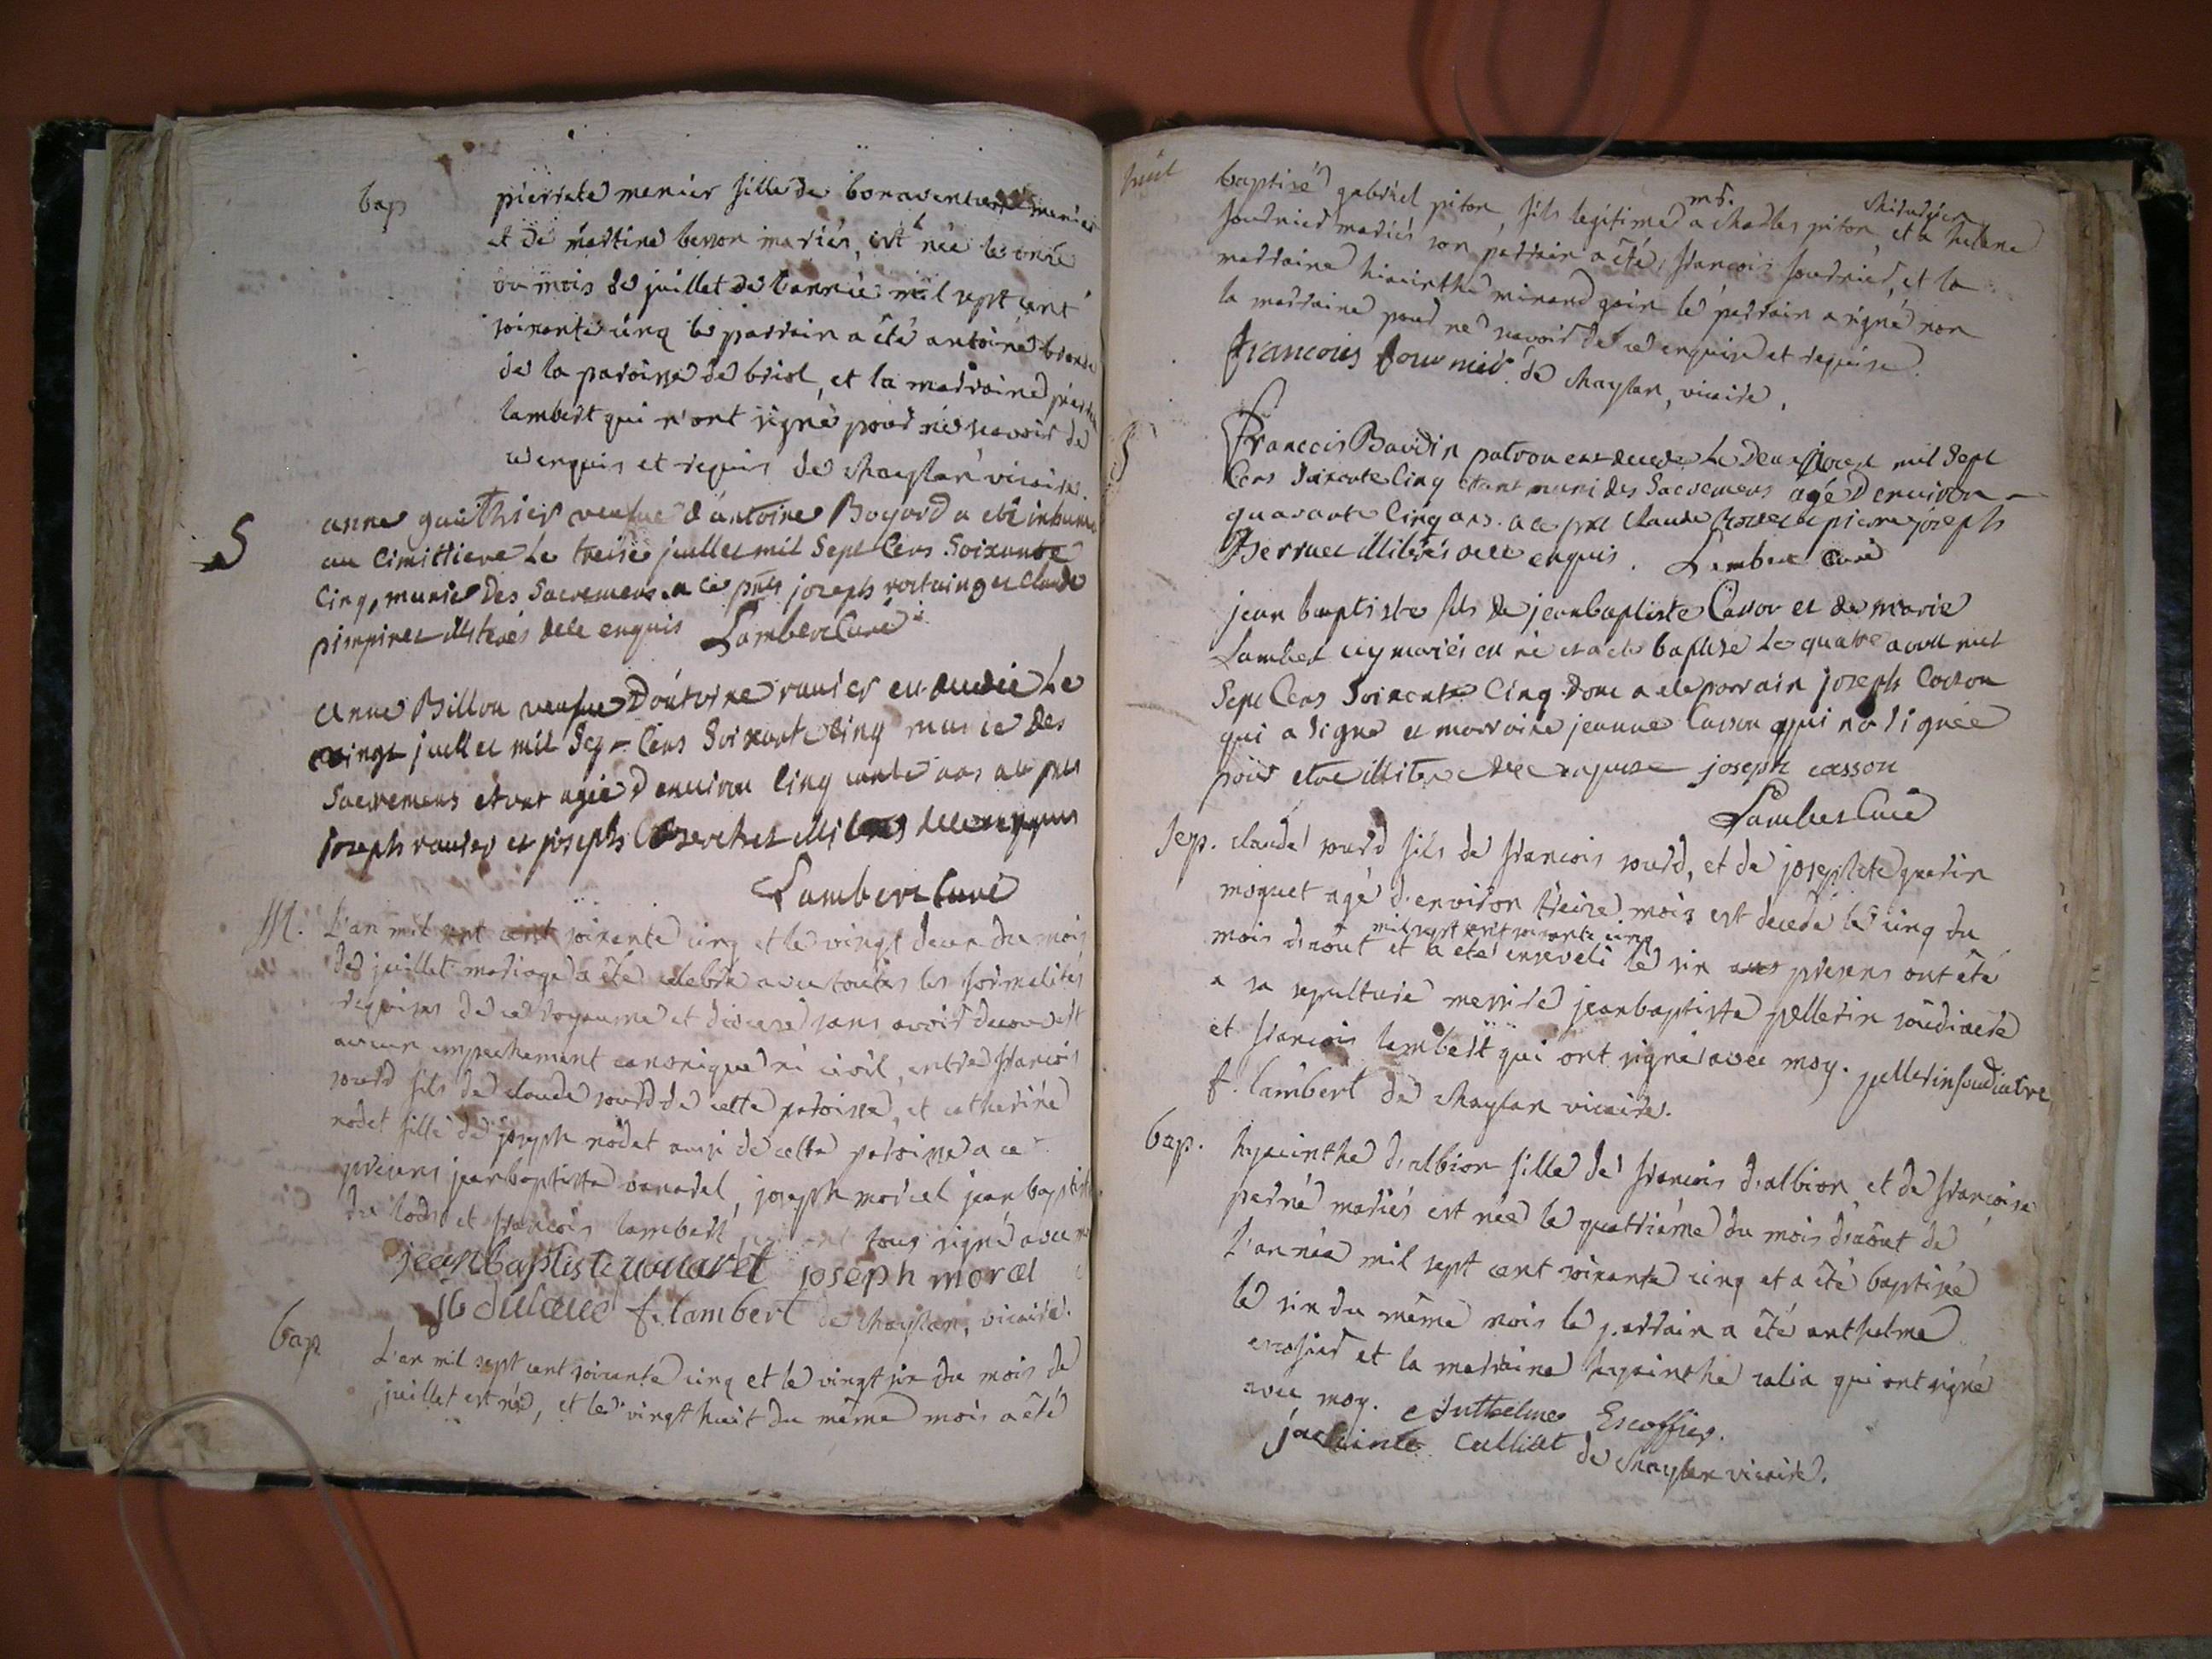 bap
pierrete menier fille de bonaventure menier
et de martine besson mariés, est née le onze
du mois de juillet de l'année mil sept cent
soixante cinq le parrain a été antoine
de la paroisse de briol, et la marraine
lambert qui n'ont signé pour ne scavoir de
ce enquis et requis de chaylan vicaire.
S
anne gauthier veufve d'antoine Bayard a eté inhumé
au Cimittiere Le treise juillet mil Sept Cens Soixante
Cinq, munie Des Sacremens. a ce pns joseph rostaing et Claude
pimpinet illiterés de ce enquis Lambert Curé
Anne Billon veufve D'antoine ravier est decedée Le
vingt juillet mil Sep Cens Soixante Cinq munie Des
Sacremens etant agée D'environ Cinq cante ans a ce pns
joseph ravier et joseph illiterés de ce enquis
Lambert Curé
M.
L'an mil sept cent soixante cinq et le vingt deux du mois
de juillet mariage a été celebré avec toutes les formalités
requises de ce royaume et diocese sans avoir decouvert
aucun empechement canonique ni civil, entre francois
sourd fils de claude sourd de cette paroisse, et catherine
rodet fille de joseph rodet aussi de cette paroisse a ce
presens jean baptiste vanarel, joseph morel jean baptiste
du lods et francois lambert qui ont tous signé avec moy
jean baptiste vanaret joseph morel
jb f. lambert de chaylan, vicaire.
bap
L'an mil sept cent soixante cinq et le vingt six du mois de
juillet est né, et le vingt huit du même mois a été
baptisé gabriel piton, fils legitime a md. charles piton chirurgien, et a helene
fournier mariés son parrain a été, francois fournier, et la
marraine hiacinthe minand goin le parrain a signé non
la marraine pour ne scavoir de ce enquise et requise.
francois fournier. de chaylan, vicaire.
S
Francois Baudin patron est decedé Le Deux Aoust mil Sept
Cens Soixante Cinq etant muni des Sacremens agé D'environ
quarante Cinq ans. a ce pns Claude et pierre joseph
Berruet illiterés de ce enquis. Lambert Curé
jean baptiste fils de jean baptiste Casson et de marie
Lambert icy mariés est né et a eté baptisé Le quatre aoust mil
Sept Cens Soixante Cinq Dont a eté parrain joseph Casson
qui a Signé et marraine jeanne Casson qui n'a Signée
pour etre illiterée De ce enquise joseph casson
Lambert Curé
Sep.
claude sourd fils de francois sourd, et de josephte guerin
moquet agé d'environ treize mois est decedé le cinq du
mois d'aôut mil sept cent soixante cinq et a été enseveli le six presens ont été
a sa sepulture messire jean baptiste pellerin soudiacre
et francois lambert qui ont signé avec moy. pellerin soudiacre
f. lambert de chaylan vicaire.
bap.
hyacinthe d'albion fille de francois d'albion et de francoise
perné mariés est née le quatrième du mois d'aôut de
L'année mil sept cent soixante cinq et a été baptisée
le six du même mois le parrain a été anthelme
escofier et la marraine hyacinthe calia qui ont signé
avec moy. Anthelme Escoffier.
jacinte Culliat de chaylan vicaire.